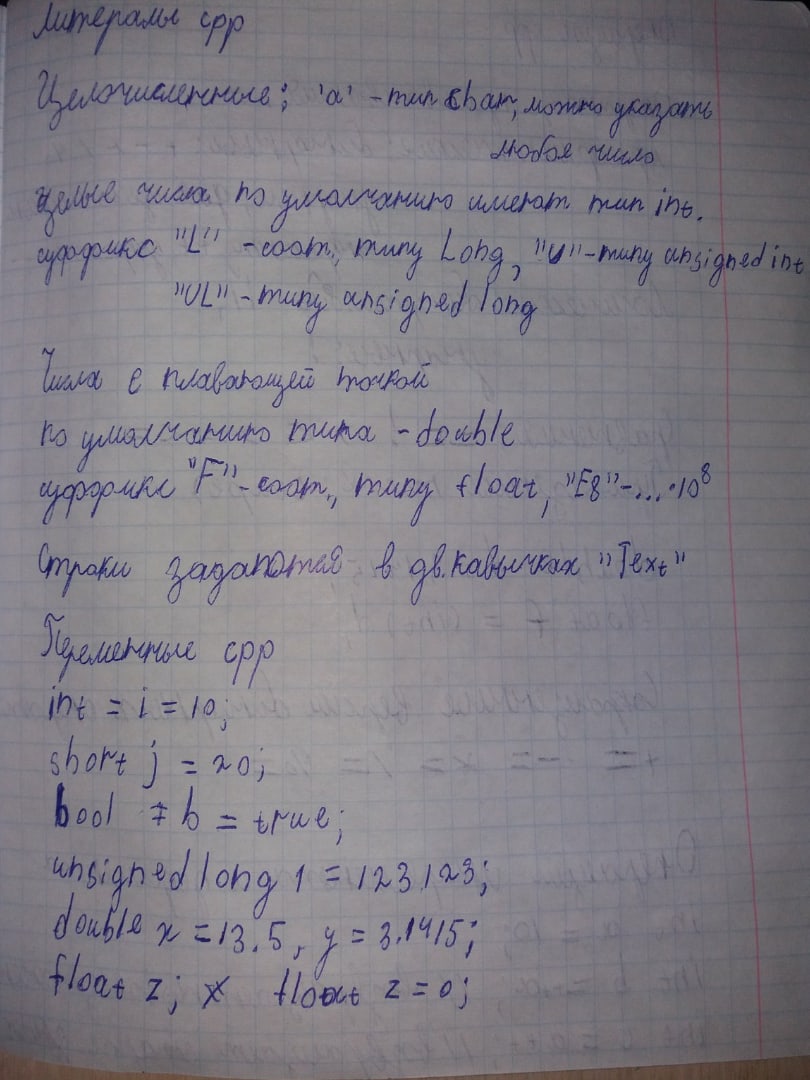 Литералы cpp
Целочисленные: 'a' - тип char, можно указать
любое число
целые числа по умолчанию имеют тип int.
суффикс "L" - соот. типу Long, "U" - типу unsigned int
"UL" - типу unsigned long
Числа с плавающей точкой
по умолчанию типа - double
суффикс "F" - соот., типу float, "E8" - ... · 10⁸
Строки задаются в дв. кавычках "Text"
Переменные cpp
int = i = 10;
short j = 20;
bool b = true;
unsigned long l = 123123;
double x = 13.5, y = 3.1415;
float z; x float z = 0;